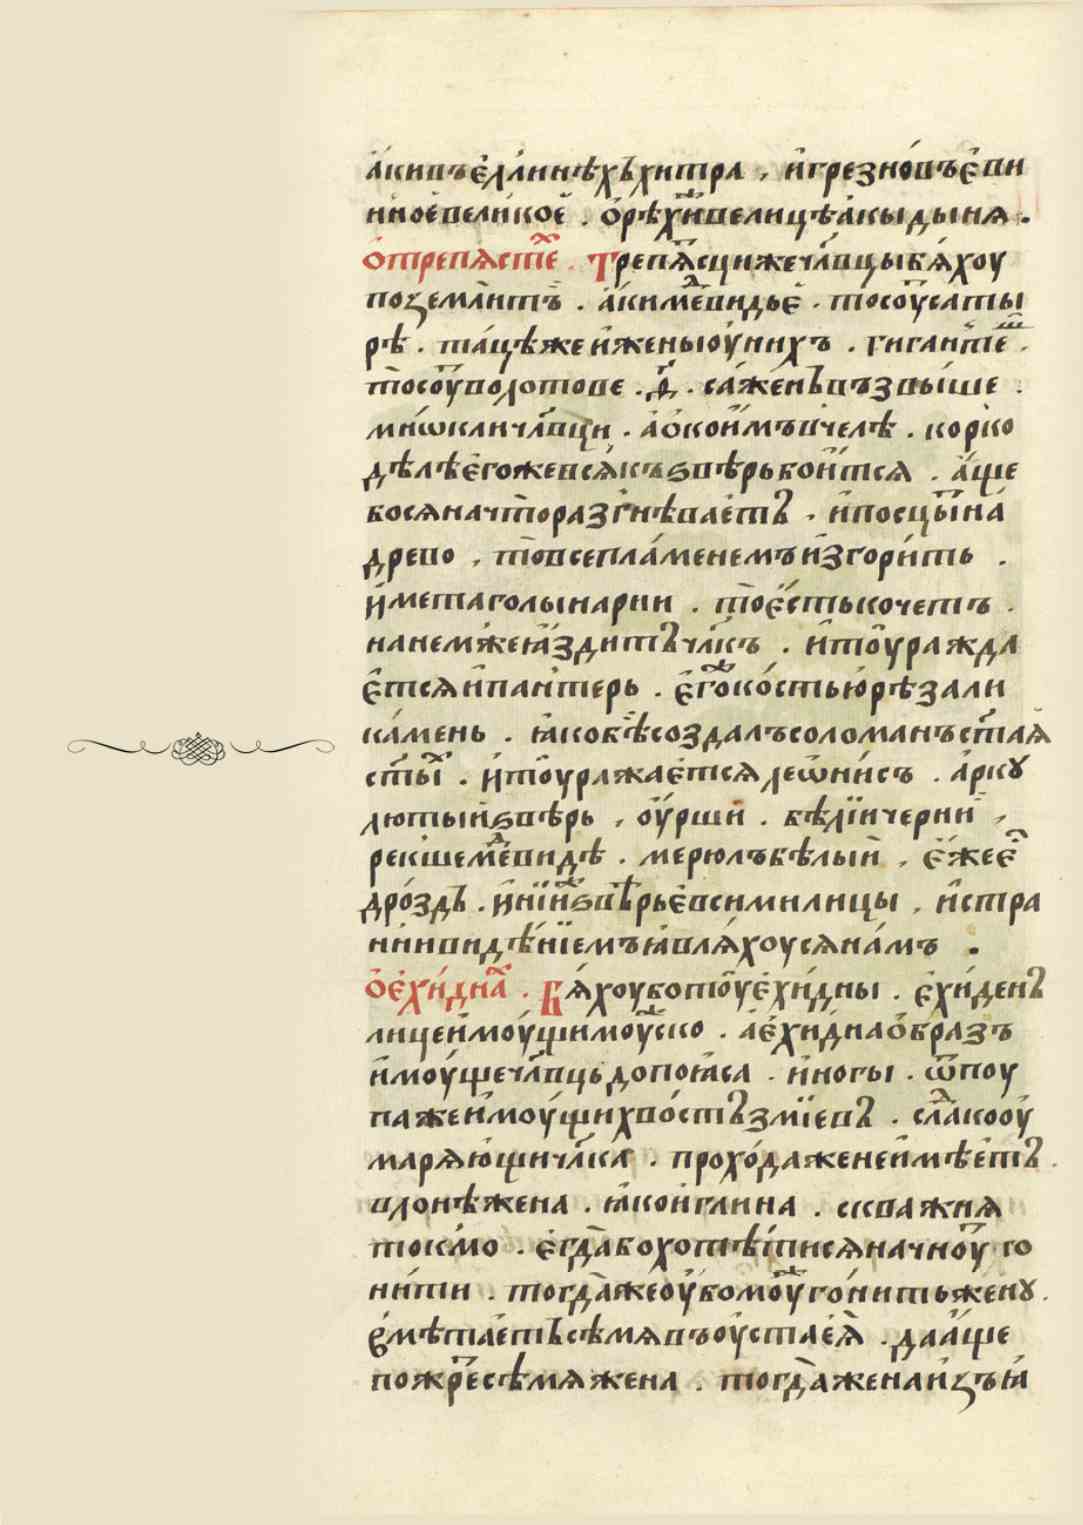 а҆кивъе҆ллинѣхъхитра , и҆грезно́въе҆ви
нно́евели́кое҆ . ѻ҆рѣхи҆велицѣа҆кыдынѧ .
ѻ҆трепѧстѣ . Трепѧсцижечл҃вцыбѧ́хоу
поземлѝтъ . а҆кимеⷣвидье҆ . тосоу҆саты
рѣ . та́цѣжеи҆женыоу҆нихъ . гигантеⷨ .
то̀соу҆волотове . д҃ . са́женьвъзвы́ше .
ми́ѡкличл҃вци . а҆ѻ҆кои҆мъвчелѣ . корко
дѣлѣе҆гожевсѧ́къѕвѣрьбои́тсѧ . а҆́ще
босѧначто̀разгнѣваетъ . и҆посцы̀на
древо , то̀всепла́менемъи҆згори́ть .
и҆метаголынарии . то̀е҆́стькочетъ .
нанемжеꙗ҆́здитъчл҃къ . и҆тоу҆ражда
е҆тсѧи҆пантерь . е҆гоⷤко́стьюрѣзали
ка́мень . ꙗ҆кобѣсоздалъсоломанъст҃аѧ
ст҃ыⷯ . и҆тоу҆ражае́тсѧлеѡ́нисъ . а҆ркꙋ
лютыйѕвѣрь , оу҆рши . бѣлїичерний ,
рекшемеⷣвидѣ . мерюлъбѣлый , е҆́жее҆с̑
дро́здъ . и҆нїиⷤѕвѣрьевсимилицы , и҆стра
нни́видѣ́нїемъꙗ҆влѧ́хоусѧна́мъ .
ѻ҆е҆хи́днаⷯ . Бѧ́хоуботоу҆е҆хи́дны . е҆хи́денъ
лицеи҆моу́щимоуⷤско . а҆е҆хи́днаѻ҆́бразъ
и҆моу́щечл҃вцьдопоꙗса . и҆ногы . ѿпоу
пажеи҆моу́щихво́стъзмїевъ . слⷣакооу҆
марѧю́щичл҃ка . прохо́даженеи҆мѣе́тъ .
влонѣжена . ꙗ҆кои҆глина . скважнѧ
токмо . е҆гда̀бохотѣ́тисѧначноу́тго
ни́ти . тогда̀жеоу҆бомоуⷤго́нитьженꙋ .
е҆мѣтаетьсѣмѧвъоу҆стае҆ѧ̀ . даа҆́ще
пожре́тсѣмѧжена . тогда̀женаи҆зъꙗ́